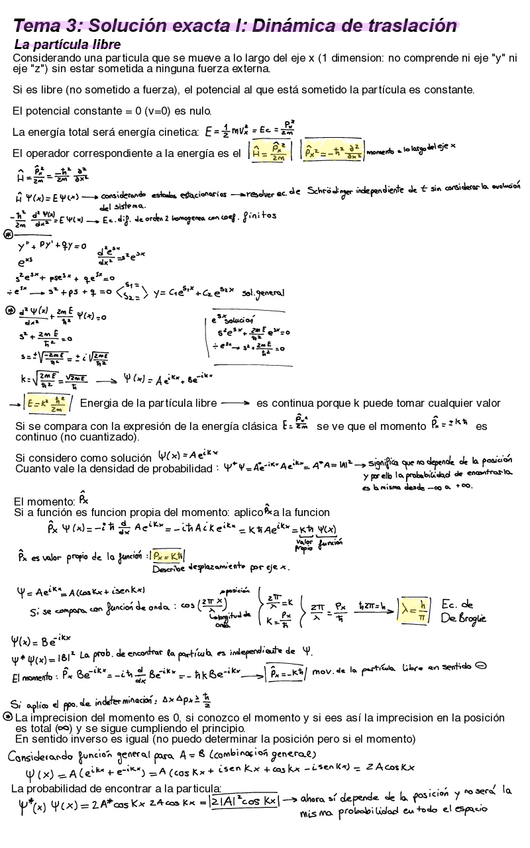 Tema 3: Solución exacta I: Dinámica de traslación
La partícula libre
Considerando una particula que se mueve a lo largo del eje x (1 dimension: no comprende ni eje "y" ni
eje "z") sin estar sometida a ninguna fuerza externa.
Si es libre (no sometido a fuerza), el potencial al que está sometido la partícula es constante.
El potencial constante = 0 (v=0) es nulo.
La energía total será energía cinetica: E = 1/2 mv²ₓ = Ec = Pₓ²/2m
El operador correspondiente a la energía es el Ĥ = P̂ₓ²/2m P̂ₓ² = -ħ² ∂²/∂x² momento a lo largo del eje x
Ĥ = P̂ₓ²/2m = -ħ²/2m ∂²/∂x²
Ĥ Ψ(x) = EΨ(x) → considerando estados estacionarios → resolver ec. de Schrödinger independiente de t sin considerar la evolución
del sistema.
-ħ²/2m d²Ψ(x)/dx² = EΨ(x) → Ec. dif. de orden 2 homogenea con coef. finitos
y'' + py' + qy = 0 d²e^sx/dx² = s²e^sx
e^xs
s²e^sx + pse^sx + qe^sx = 0
÷ e^sx → s² + ps + q = 0 < s₁ = s₂ = > y = C₁e^s₁x + C₂e^s₂x sol. general
d²Ψ(x)/dx² + 2mE/ħ² Ψ(x) = 0 e^sx solución
s² + 2mE/ħ² = 0 s²e^sx + 2mE/ħ² e^sx = 0
s = ±√(-2mE/ħ²) = ± i√(2mE/ħ²) ÷ e^sx → s² + 2mE/ħ² = 0
k = √(2mE/ħ²) = √2mE/ħ → Ψ(x) = Ae^ikx + Be^-ikx
→ E = k² ħ²/2m Energia de la partícula libre → es continua porque k puede tomar cualquier valor
Si se compara con la expresión de la energía clásica E = P̂ₓ²/2m se ve que el momento P̂ₓ = ± kħ es
continuo (no cuantizado).
Si considero como solución Ψ(x) = Ae^ikx
Cuanto vale la densidad de probabilidad: Ψ*Ψ = A*e^-ikx Ae^ikx = A*A = |A|² → significa que no depende de la posición
y por ello la probabilidad de encontrarla
es la misma desde -∞ a +∞.
El momento: P̂ₓ
Si a función es funcion propia del momento: aplico P̂ₓ a la funcion
P̂ₓ Ψ(x) = -iħ d/dx Ae^ikx = -iħ Aike^ikx = kħAe^ikx = kħ Ψ(x)
valor propio función
P̂ₓ es valor propio de la función: Pₓ = kħ
Describe desplazamiento por eje x.
Ψ = Ae^ikx = A(cos kx + isen kx)
Si se compara con función de onda: cos (2π x/λ) posición longitud de onda { 2π/λ = k k = Pₓ/ħ } 2π/λ = Pₓ/ħ ħ2π = h → λ = h/π Ec. de
De Broglie
Ψ(x) = Be^-ikx
Ψ*Ψ(x) = |B|² La prob. de encontrar la partícula es independiente de Ψ.
El momento: P̂ₓ Be^-ikx = -iħ d/dx Be^-ikx = -ħkBe^-ikx → Pₓ = -kħ mov. de la partícula libre en sentido ⊖
Si aplico el ppo. de indeterminación: Δx Δpₓ ≥ ħ/2
La imprecision del momento es 0, si conozco el momento y si ees así la imprecision en la posición
es total (∞) y se sigue cumpliendo el principio.
En sentido inverso es igual (no puedo determinar la posición pero si el momento)
Considerando función general para A = B (combinacion general)
Ψ(x) = A(e^ikx + e^-ikx) = A(cos kx + isen kx + cos kx - isen kx) = 2A cos kx
La probabilidad de encontrar a la particula:
Ψ*(x) Ψ(x) = 2A* cos kx 2A cos kx = 2|A|² cos kx → ahora sí depende de la posición y no será la
misma probabilidad en todo el espacio